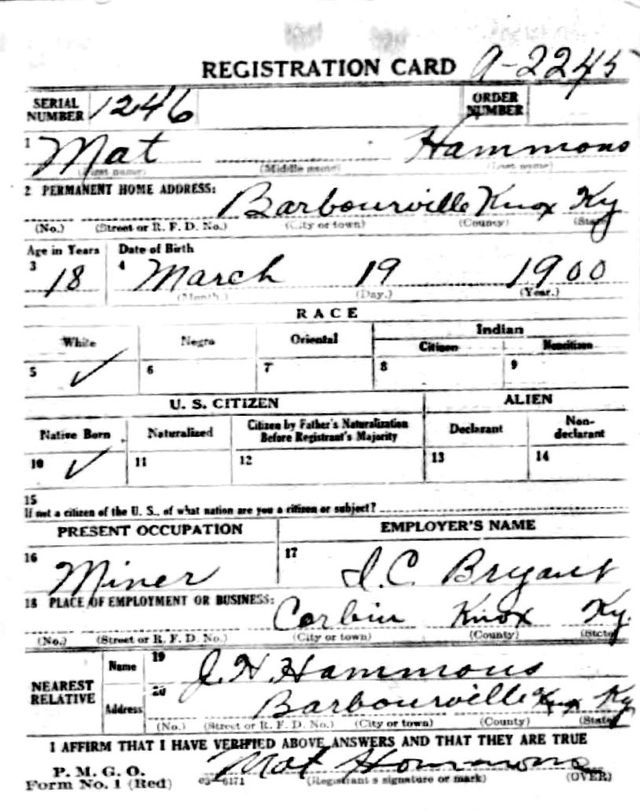 REGISTRATION CARD A-2245
SERIAL NUMBER 1246 ORDER NUMBER
1 Mat Hammons
(First name) (Middle name) (Last name)
2 PERMANENT HOME ADDRESS:
Barbourville Knox Ky
(No.) (Street or R. F. D. No.) (City or town) (County) (State)
Age in Years Date of Birth
3 18 4 March 19 1900
(Month.) (Day.) (Year.)
RACE
White Negro Oriental Indian
Citizen Noncitizen
5 ✓ 6 7 8 9
U. S. CITIZEN ALIEN
Native Born Naturalized Citizen by Father's Naturalization Before Registrant's Majority Declarant Non-declarant
10 ✓ 11 12 13 14
15
If not a citizen of the U. S., of what nation are you a citizen or subject?
PRESENT OCCUPATION EMPLOYER'S NAME
16 Miner 17 I. C. Bryant
18 PLACE OF EMPLOYMENT OR BUSINESS:
Corbin Knox Ky.
(No.) (Street or R. F. D. No.) (City or town) (County) (State)
NEAREST RELATIVE Name 19 J. H. Hammons
Address 20 Barbourville Knox Ky
(No.) (Street or R. F. D. No.) (City or town) (County) (State)
I AFFIRM THAT I HAVE VERIFIED ABOVE ANSWERS AND THAT THEY ARE TRUE
P. M. G. O.
Form No. 1 (Red) Mat Hammons
(Registrant's signature or mark) (OVER)